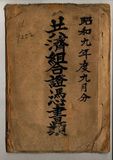 昭和九年度九月分
共濟組合證憑書類